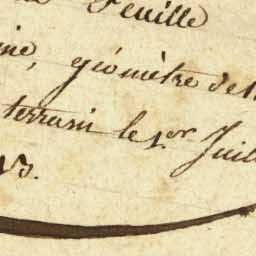 Feuille
géomètre de
terrain le 1er Juil